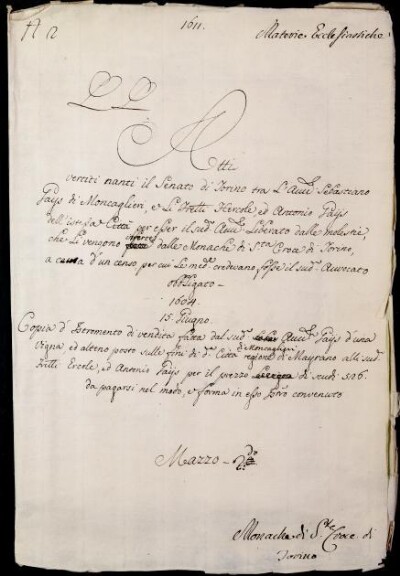 N 12
1611.
Materie Ecclesiastiche
Atti
vertiti nanti il Senato di Torino tra L'Avv.to Sebastiano
Pays di Moncaglieri, e Li Fratelli Hercole, ed Antonio Pays
dell'istessa Città per esser il sud.o Avv.to Liberato dalle molestie,
che Li vengono inferte dalle Monache di S.ta Croce di Torino,
a causa d'un censo, per cui Le med.e credevano fosse il sud.o Avvocato
obbligato -
1604
15. Giugno.
Copia d'Istromento di vendita fatta dal sud.o Avv.to Pays d'una
vigna, ed alteno posto sulle fini di d.a Città di Moncaglieri regione di Mayrano alli sud.i
Fratelli Ercole, ed Antonio Pays per il prezzo di scudi 526.
da pagarsi nel modo, e forma in esso Istro convenuto
Mazzo - 2.do
Monache di S.ta Croce di
Torino